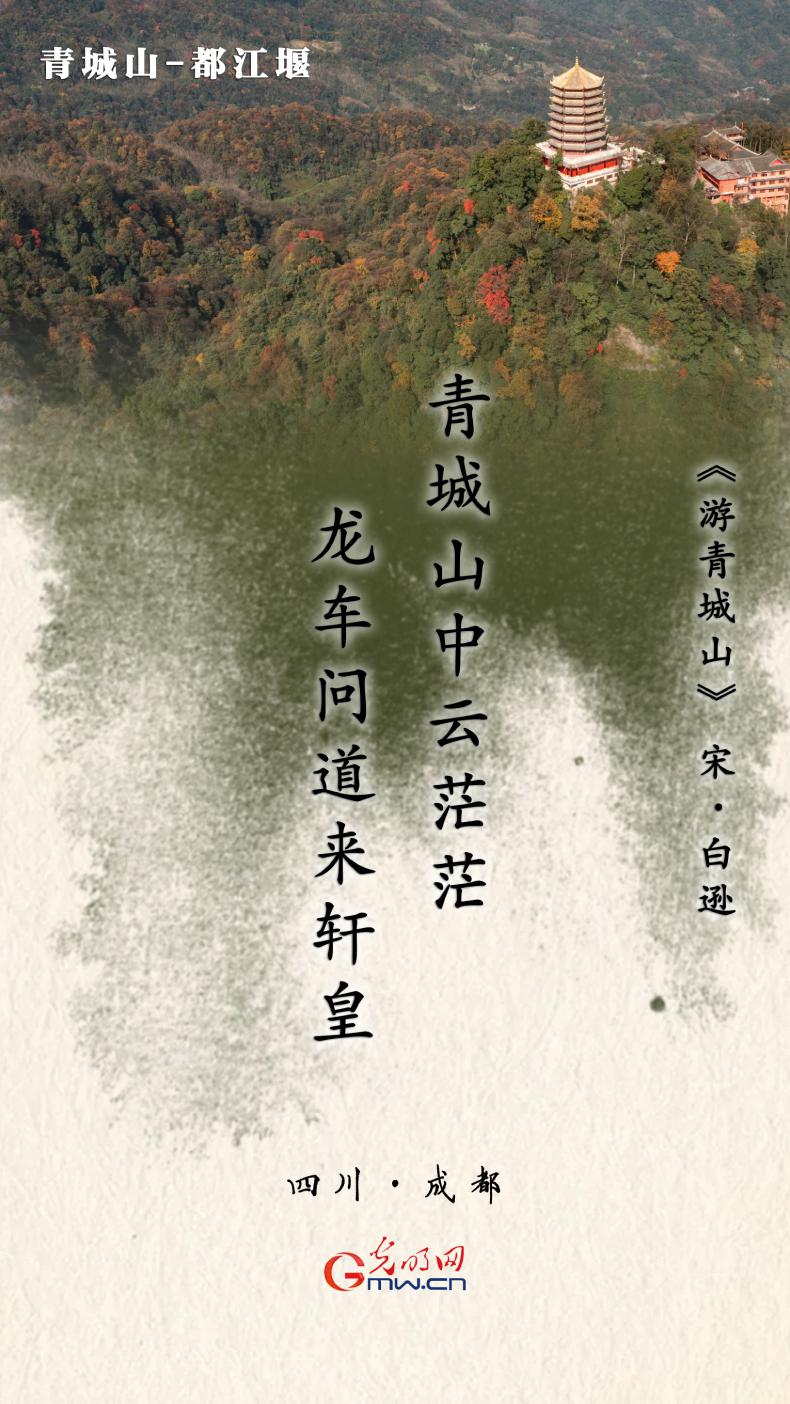 青城山-都江堰
《游青城山》 宋·白逊
青城山中云茫茫
龙车问道来轩皇
四川·成都
光明网
GMW.CN